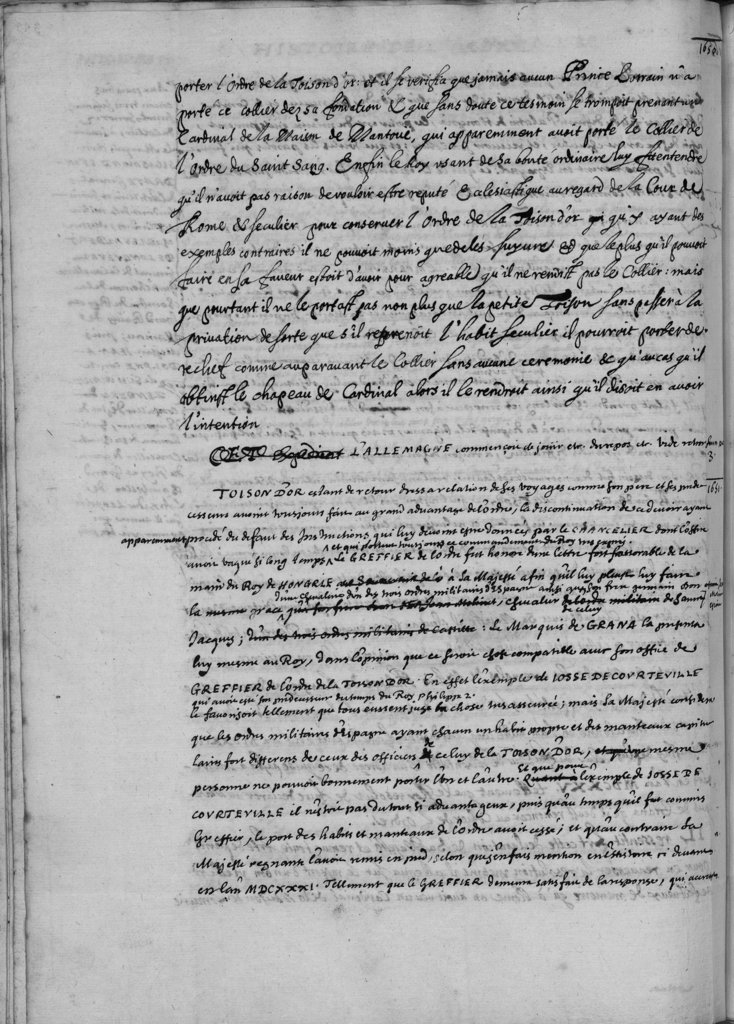 1650.
porter l'ordre de la Toison d'or: et il se verifia que jamais aucun Prince Lorrain n'a
porté ce collier dez sa fondation & que sans doute ce tesmoin se trompoit prenant un
Cardinal de la Maison de Mantoue, qui apparemment avoit porté le Collier de
l'Ordre du Saint Sang. Enfin le Roy usant de sa bonté ordinaire luy fit entendre
qu'il n'avoit pas raison de vouloir estre reputé Eclesiastique au regard de la Cour de
Rome & seculier pour conserver l'Ordre de la Toison d'or qu'y ayant des
exemples contraires il ne pouvoit moins que de les suyvre & que le plus qu'il pouvoit
faire en sa faveur estoit d'avoir pour agreable qu'il ne rendist pas le Collier: mais
que pourtant il ne le portast pas non plus que la petite Toison sans passer à la
privation de sorte que s'il reprenoit l'habit seculier il pourroit porter de
rechef comme auparavant le Collier sans aucune ceremonie & qu'au cas qu'il
obtinst le chapeau de Cardinal alors il le rendroit ainsi qu'il disoit en avoir
l'intention
L'ALLEMAGNE commençoit de jouir etc. du repos etc. vide
3.
1651.
TOISON D'OR estant de retour dressa relation de ses voyages comme son pere et ses prede
cesseurs avoient tousjours fait au grand advantage de l'ordre, la discontinuation de ce devoir ayant
apparemment procedé du defaut des Instructions qui luy devoient estre données par le CHANCELIER dont l'office
et qui doibvent tousjours
avoit vaqué si long temps. Le GREFFIER de l'ordre fut honoré d'une lettre fort favorable de la
main du Roy de HONGRIE à Sa Majesté afin qu'il luy pleust luy faire
d'un chevalier d'un des trois ordres militaires d'Espagne ainsi qu'à son frere germain Don
la mesme grace chevalier
de celuy
Jacques; d'un des trois ordres militaires de Castille: Le Marquis de GRANA la presenta
luy mesme au Roy, dans l'opinion que ce seroit chose compatible avec son office de
GREFFIER de l'ordre de la TOISON D'OR. En effet l'exemple de JOSSE DE COURTEVILLE
qui avoit esté son predecesseur du temps du Roy Philippe 2.
le favorisoit tellement que tous eussent jugé la chose tres asseurée; mais Sa Majesté
que les ordres militaires d'Espagne ayant chacun un habit propre et des manteaux capitu
laires fort differens de ceux des officiers de celuy de la TOISON D'OR, mesme
Et que pour
personne ne pouvoit bonnement porter l'un et l'autre. Quant à l'exemple de JOSSE DE
COURTEVILLE il n'estoit pas du tout si advantageux, puis qu'au temps qu'il fut commis
Greffier, le port des habits et manteaux de l'ordre avoit cessé; et qu'au contraire Sa
Majesté regnante l'avoit remis en pied, selon que j'en fais mention en l'histoire ci devant
en l'an MDCXXXI. Tellement que le GREFFIER demeura satisfait de la response, qui